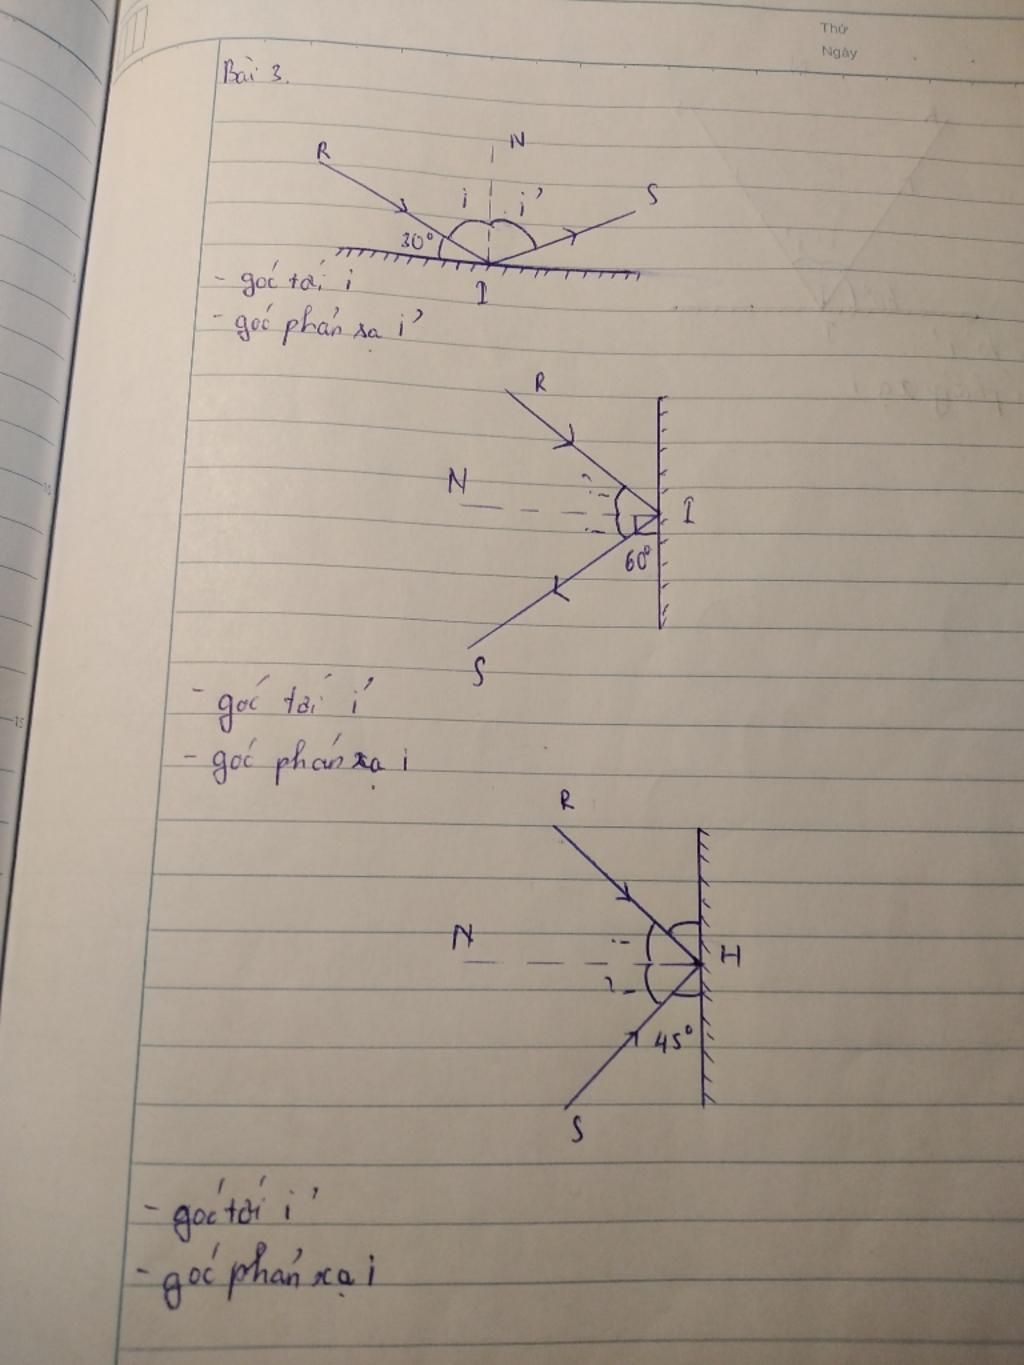 Thứ
Ngày
Bài 3.
R
N
S
i
i'
30°
I
- góc tới i
- góc phản xạ i'
R
N
I
60°
S
- góc tới i'
- góc phản xạ i
R
N
i
H
45°
S
- góc tới i'
- góc phản xạ i